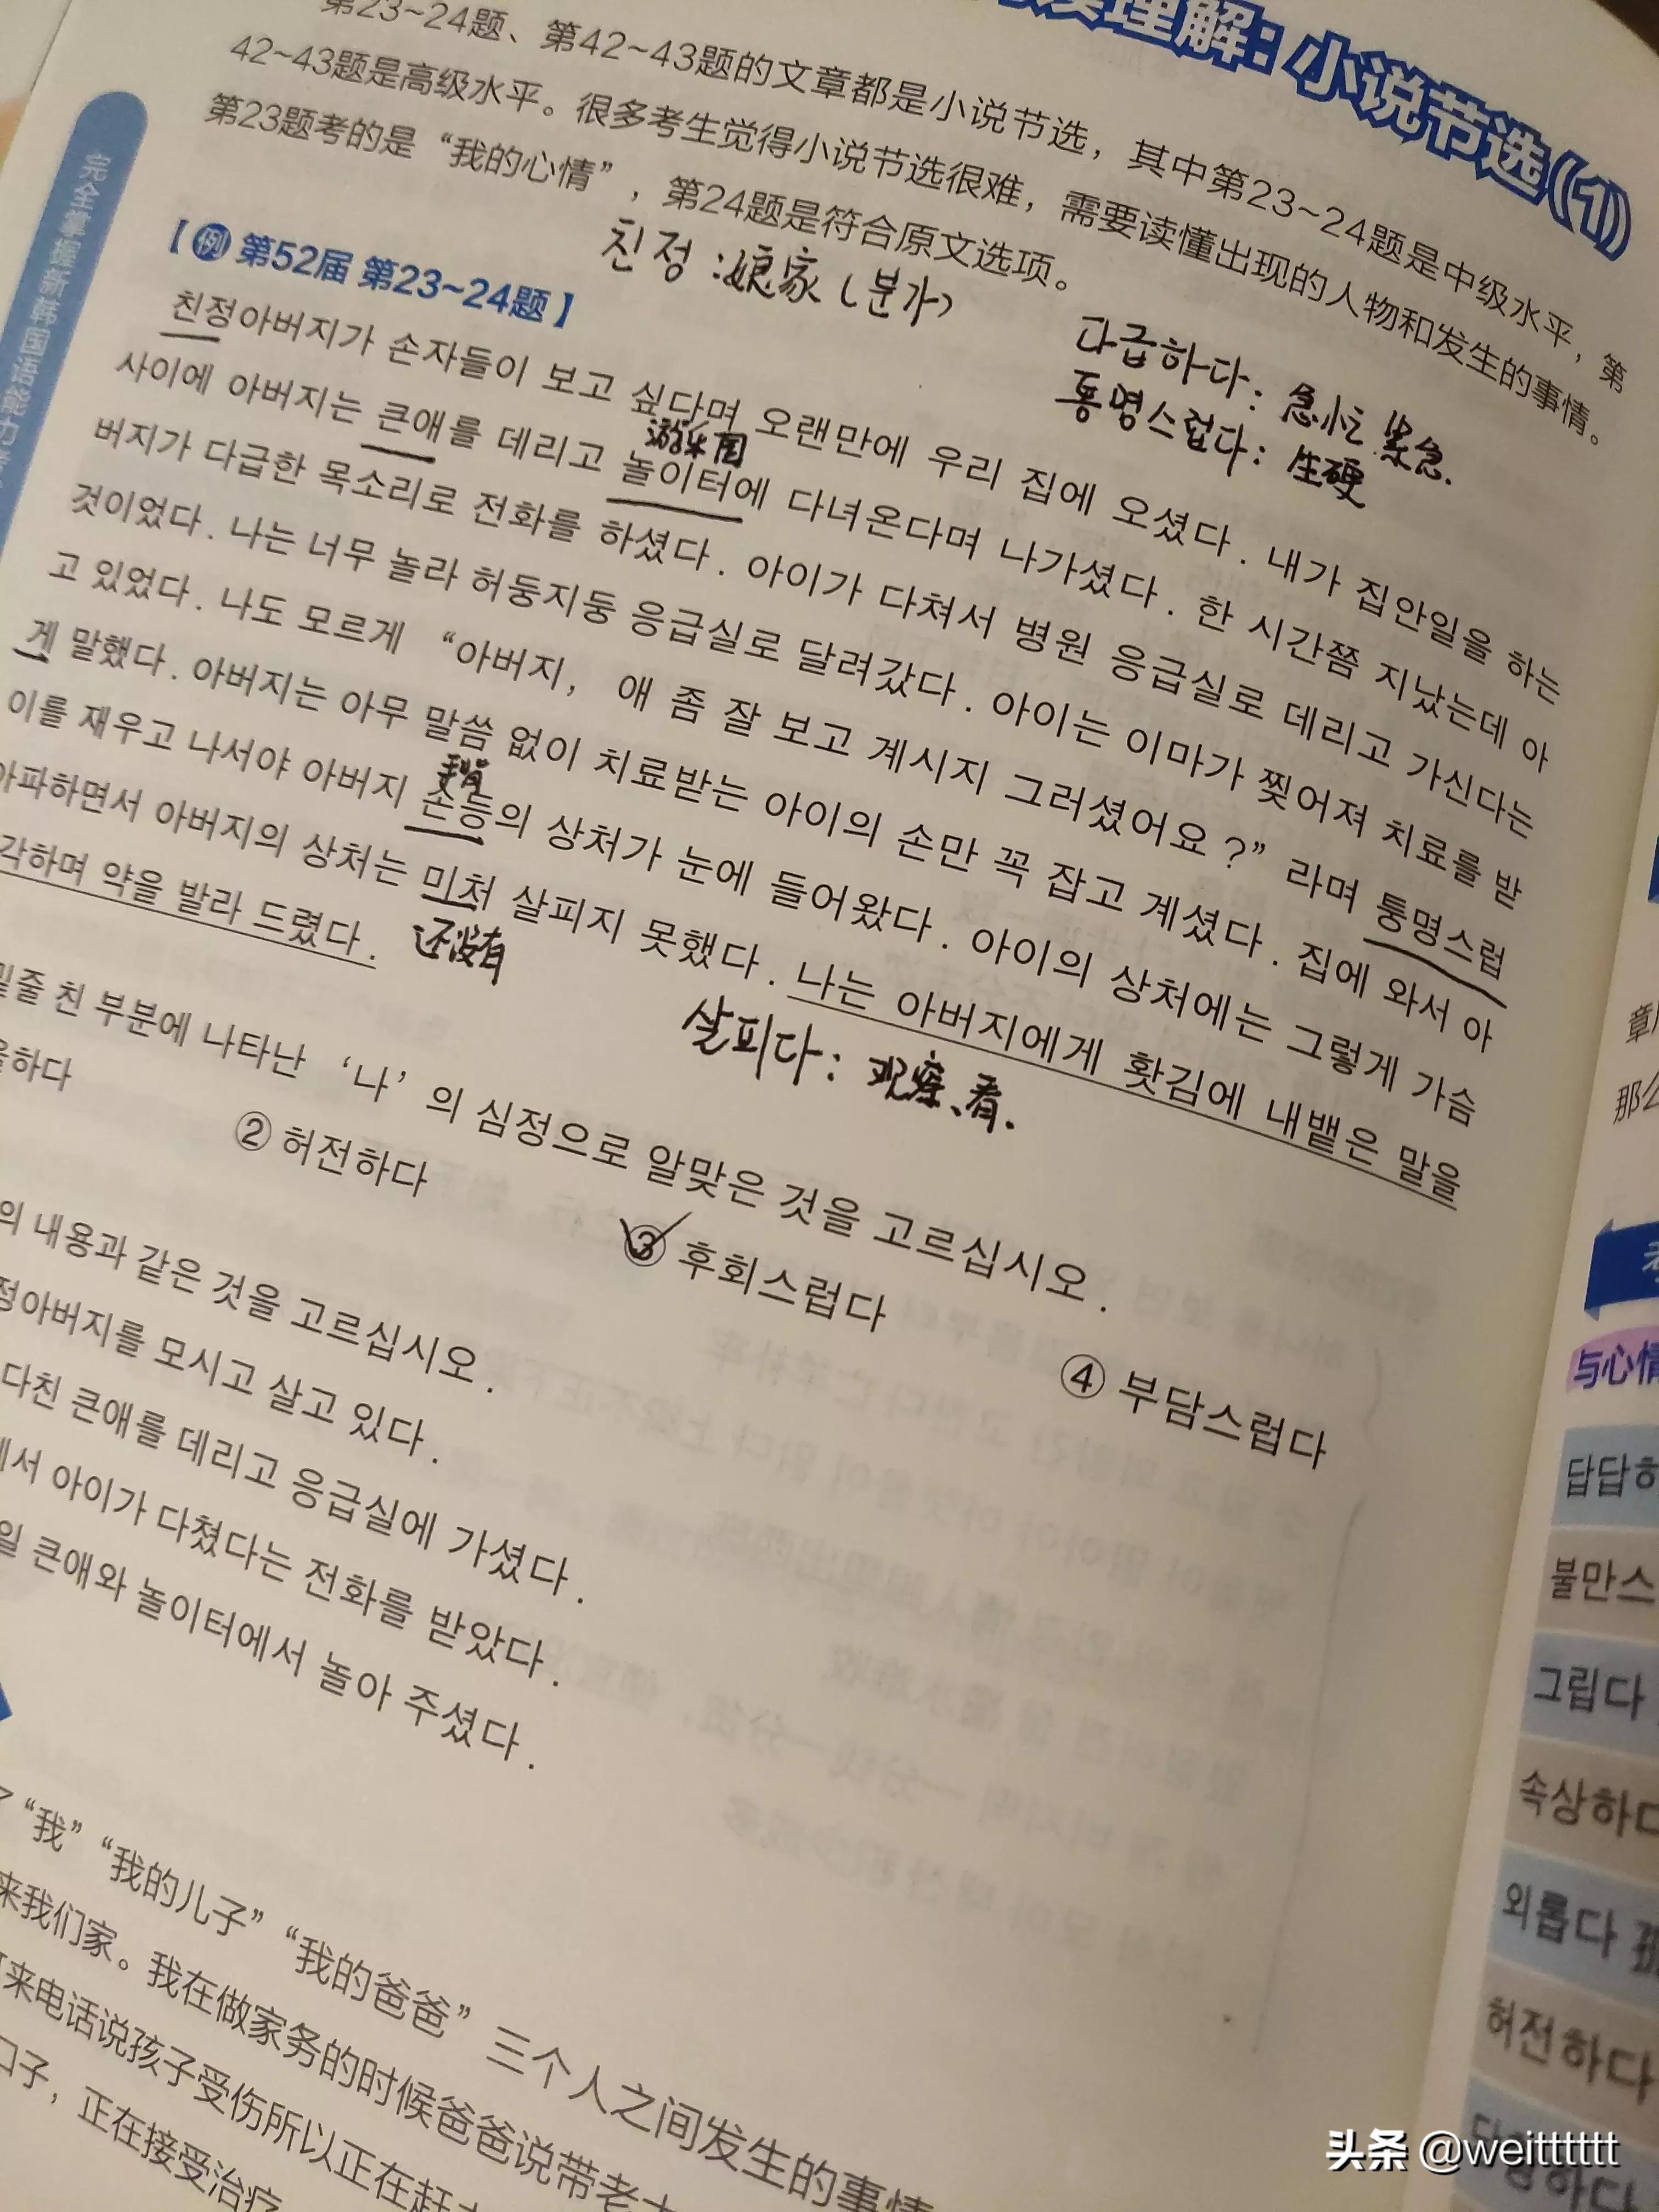 理解：小说节选（1）
第23~24题、第42~43题的文章都是小说节选，其中第23~24题是中级水平，第
42~43题是高级水平。很多考生觉得小说节选很难，需要读懂出现的人物和发生的事情。
第23题考的是“我的心情”，第24题是符合原文选项。
亲정：娘家（분가）
다급하다：急忙 紧急.
퉁명스럽다：生硬
【例 第52届 第23~24题】
친정아버지가 손자들이 보고 싶다며 오랜만에 우리 집에 오셨다. 내가 집안일을 하는
游乐园
사이에 아버지는 큰애를 데리고 놀이터에 다녀온다며 나가셨다. 한 시간쯤 지났는데 아
버지가 다급한 목소리로 전화를 하셨다. 아이가 다쳐서 병원 응급실로 데리고 가신다는
것이었다. 나는 너무 놀라 허둥지둥 응급실로 달려갔다. 아이는 이마가 찢어져 치료를 받
고 있었다. 나도 모르게 “아버지, 애 좀 잘 보고 계시지 그러셨어요?” 라며 퉁명스럽
게 말했다. 아버지는 아무 말씀 없이 치료받는 아이의 손만 꼭 잡고 계셨다. 집에 와서 아
手背
이를 재우고 나서야 아버지 손등의 상처가 눈에 들어왔다. 아이의 상처에는 그렇게 가슴
아파하면서 아버지의 상처는 미처 살피지 못했다. 나는 아버지에게 홧김에 내뱉은 말을
각하며 약을 발라 드렸다.
还没有
살피다：观察、看.
밑줄 친 부분에 나타난 ‘나’의 심정으로 알맞은 것을 고르십시오.
하다
② 허전하다
③ 후회스럽다
④ 부담스럽다
의 내용과 같은 것을 고르십시오.
정아버지를 모시고 살고 있다.
다친 큰애를 데리고 응급실에 가셨다.
에서 아이가 다쳤다는 전화를 받았다.
일 큰애와 놀이터에서 놀아 주셨다.
了“我”“我的儿子”“我的爸爸”三个人之间发生的事情
来我们家。我在做家务的时候爸爸说带老大
来电话说孩子受伤所以正在赶
口子，正在接受治疗
完全掌握新韩国语能力考
那么
考
与心情
답답하
불만스
그립다
속상하다
외롭다 孤
허전하다
头条 @weitttttt